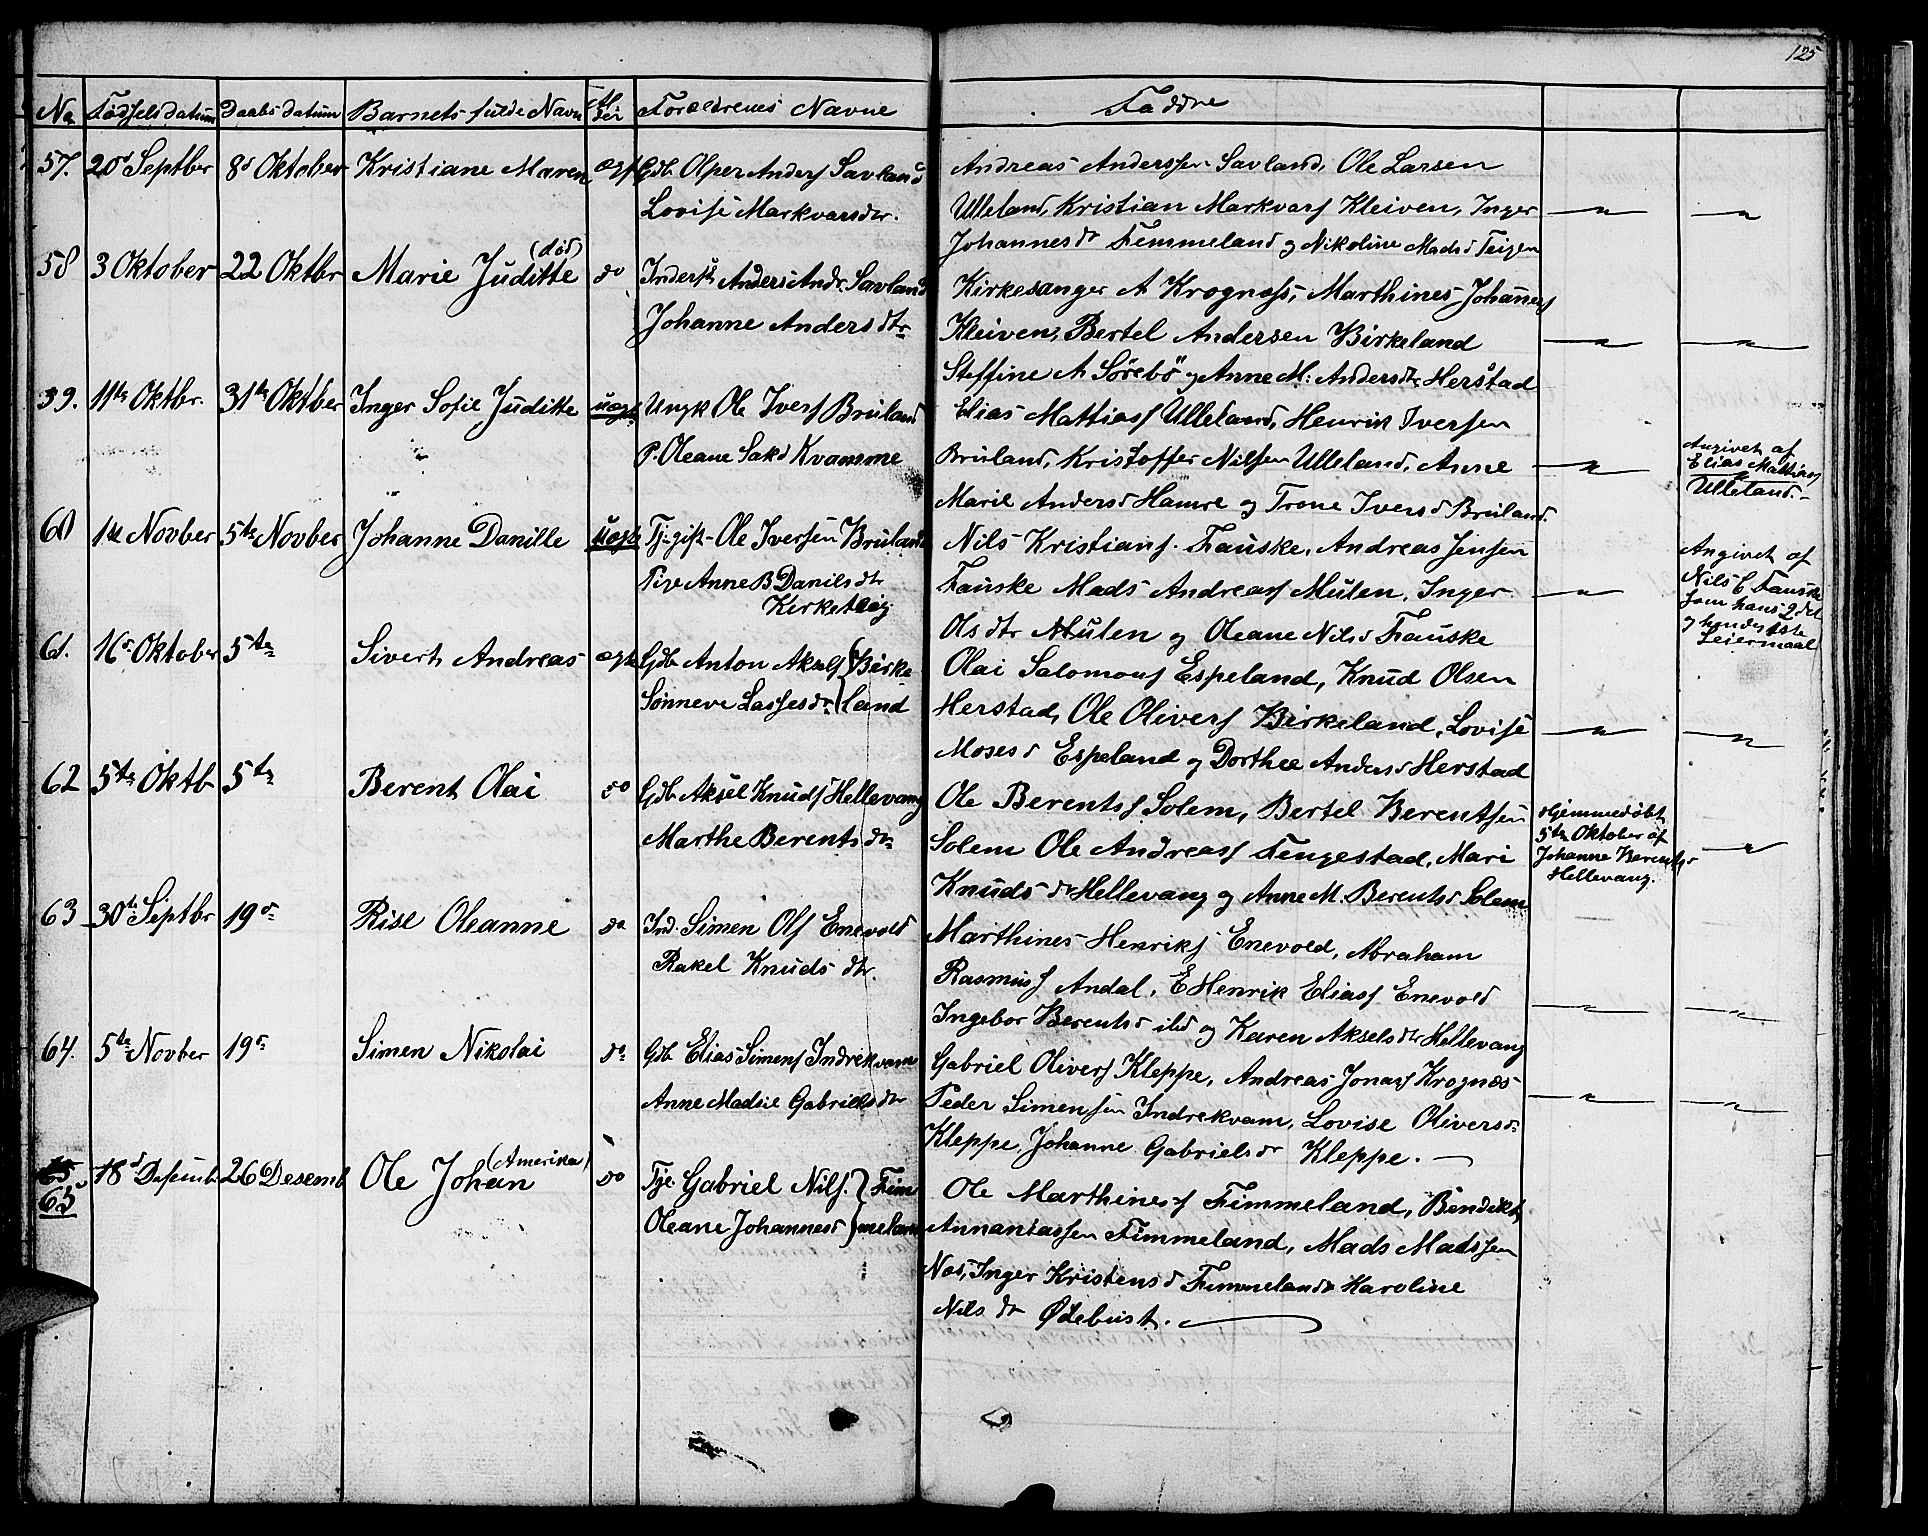 125
No Fødselsdatum Daabsdatum Barnets fulde Navn Forældrenes Navne Faddre
57. 20d Septbr 8d Oktober Kristiane Maren ægt Gdb. Olper Anders Savland
Lovise Markvarsdtr.
Andreas Anderssen Savland, Ole Larsen
Ulleland, Kristian Markvars Kleiven, Inger
Johannesdr Femmeland og Nikoline Madsd Teigen
58 3 Oktober 22 Oktbr Marie Juditte (död) do Inderst Anders Andr. Savland
Johanne Andersdtr
Kirkesanger A Krognæss, Marthines Johannes
Kleiven, Bertel Andersen Birkeland
Steffine A Sörebö og Anne M. Andersdtr Herstad
59. 11te Oktbr. 31te Oktber Inger Sofie Juditte uægt Ungk Ole Ivers Bruland
P. Oleane Sakd Kvamme
Elias Mattias Ulleland, Henrik Iversen
Bruland, Kristoffer Nilsen Ulleland, Anne
Marie Andersd Hamre og Trone Iversd Bruland.
Angivet af
Elias Mattias
Ulleland
60 1te Novber 5te Novber Johanne Danille uægt Tj. gift Ole Iversen Bruland
Pive Anne B Danilsdtr
Kirketeig
Nils Kristians. Fauske, Andreas Jensen
Fauske Mads Andreas Mulen, Inger
Olsdtr Mulen og Oleane Nilsd Fauske
Angivet af
Nils C Fauske
som hans 2det
og hendes 1ste
Leiermaal
61. 16d Oktober 5te Sivert Andreas ægte Gdb Anton Aksels Birke
Sønneve Lassesdr land
Olai Salomons Espeland, Knud Olsen
Herstad, Ole Olivers Birkeland, Lovise
Mosesd Espeland og Dorthee Andersd Herstad
62 5te Oktb 5te Berent Olai do Gdb Aksel Knuds Hellevang
Marthe Berentsdr
Ole Berents Solem, Bertel Berentsen
Solem Ole Andreas Tengestad, Mari
Knudsdr Hellevang og Anne M. Berentsd Solem
Hjemmedøbt
5te Oktober af
Johanne Berentsd
Hellevang.
63 30te Septbr 19d Risl Oleanne do Ind. Simen Ols Enevold
Rakel Knudsdtr.
Marthines Henriks Enevold, Abraham
Rasmus Andal, E Henrik Elias Enevold
Ingebor Berentsd ibd og Karen Akselsdtr Hellevang
64. 5te Novber 19d Simen Nikolai do Gdb Elias Simens Indrekvam
Anne Madsie Gabrielsdtr
Gabriel Olivers Kleppe, Andreas Jonas Krognæs
Peder Simensen Indrekvam, Lovise Oliversd
Kleppe, Johanne Gabrielsdr Kleppe.
65 18d Desemb 26 Desemb Ole Johan (Amerika) do Tje Gabriel Nils. Fim
65 Oleane Johannesd meland
Ole Marthines Fimmeland, Bendikt
Annaniassen Fimmeland, Mads Madssen
Nas, Inger Kristensd Fimmeland Karoline
Nilsdr Ødebust.